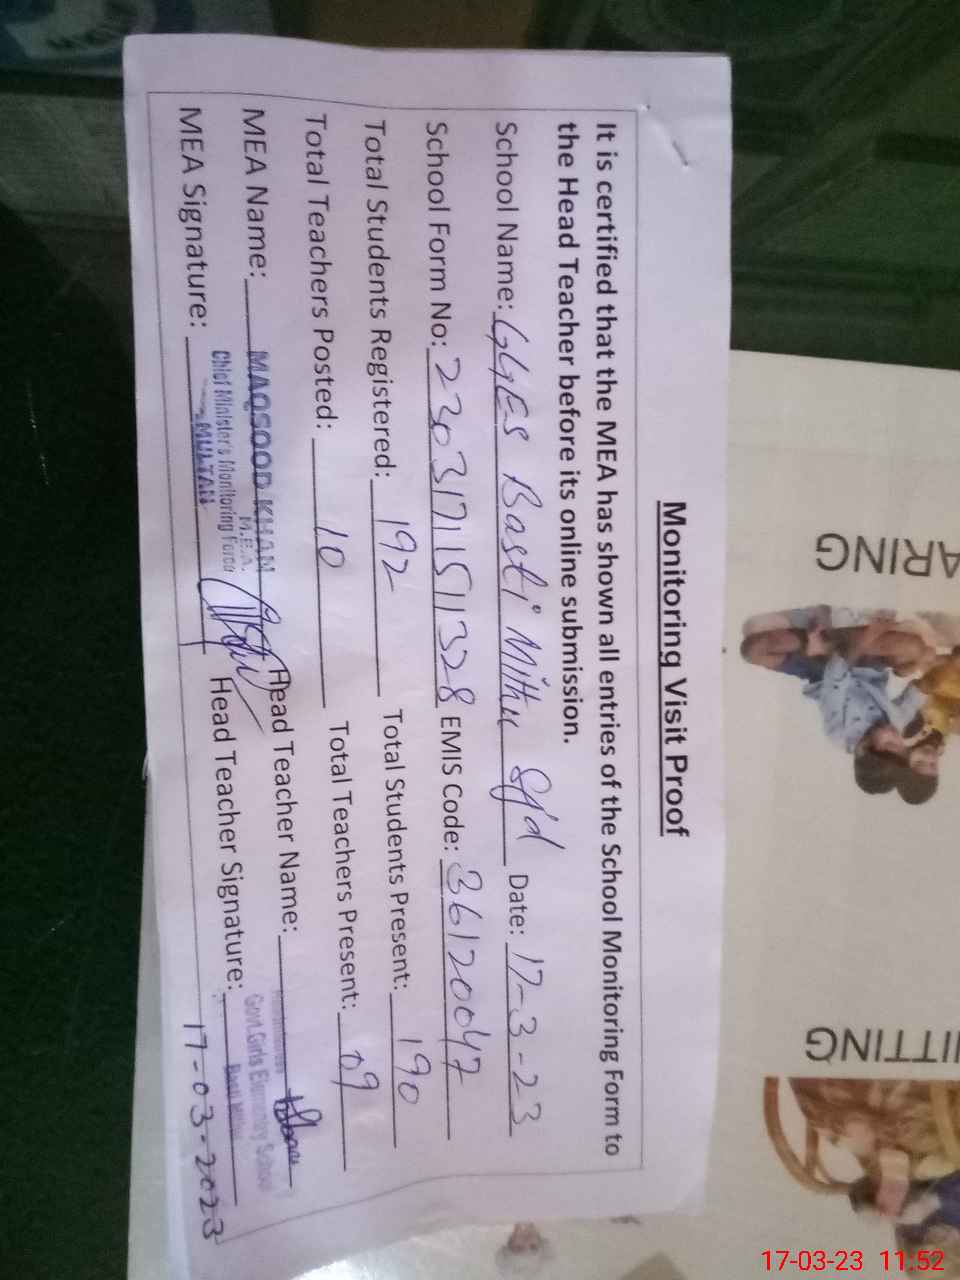 Monitoring Visit Proof
It is certified that the MEA has shown all entries of the School Monitoring Form to
the Head Teacher before its online submission.
School Name: GGES Basti Mithu Date: 17-3-23
School Form No: 2303171511328 EMIS Code: 36120047
Total Students Registered: 192 Total Students Present: 190
Total Teachers Posted: 10 Total Teachers Present: 09
MEA Name: MAQSOOD KHAN Head Teacher Name:
M.E.A.
Chief Minister's Monitoring Force
MULTAN
Govt. Girls Elementary School
MEA Signature: Head Teacher Signature:
17-03-2023
ARING
ITTING
17-03-23 11:52